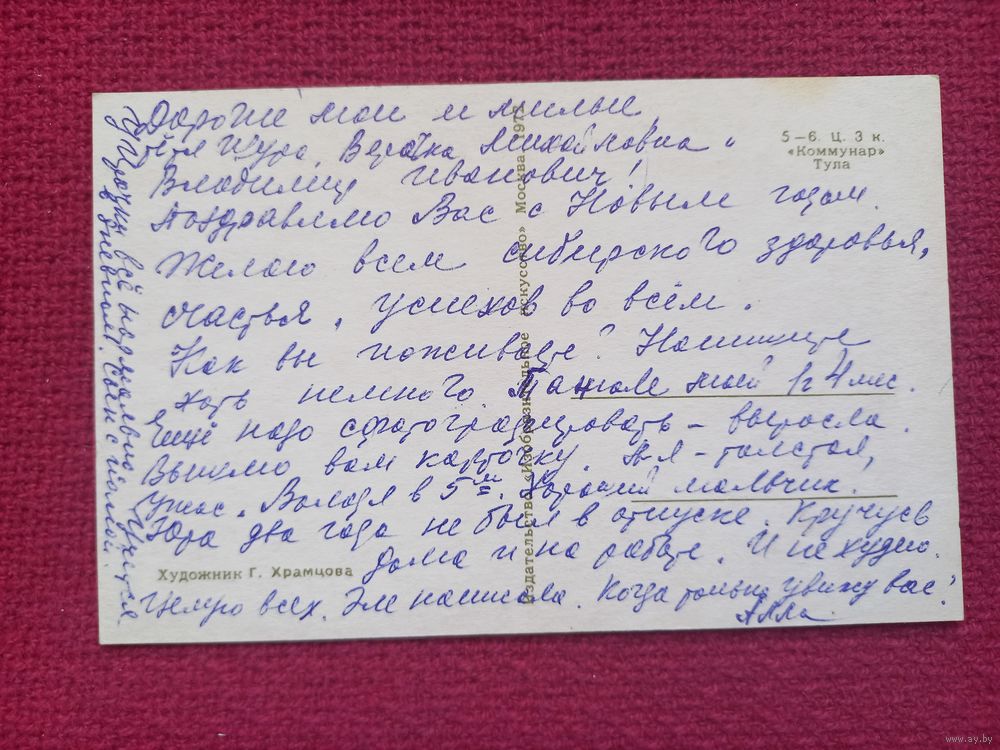 Дорогие мои и милые,
тётя Шура, Верочка Михайловна и
Владимир Иванович!
Поздравляю Вас с Новым годом.
Желаю всем сибирского здоровья,
счастья, успехов во всём.
Как вы поживаете? Напишите
хоть немного. Танюше мой 1г 4 мес.
Ещё надо сфотографировать – выросла.
Вышлю вам карточку. А я – толстая,
ужас. Володя в 5м. Хороший мальчик.
Юра два года не был в отпуске. Кручусь
дома и на работе. И не худею.
Целую всех. Эле написала. Когда только увижу вас!
Алла
У Ирочки всё нормально. Учится
в дневном.
5–6. Ц. 3 к.
«Коммунар»
Тула
Издательство «Изобразительное искусство» Москва 197
Художник Г. Храмцова
www.ay.by